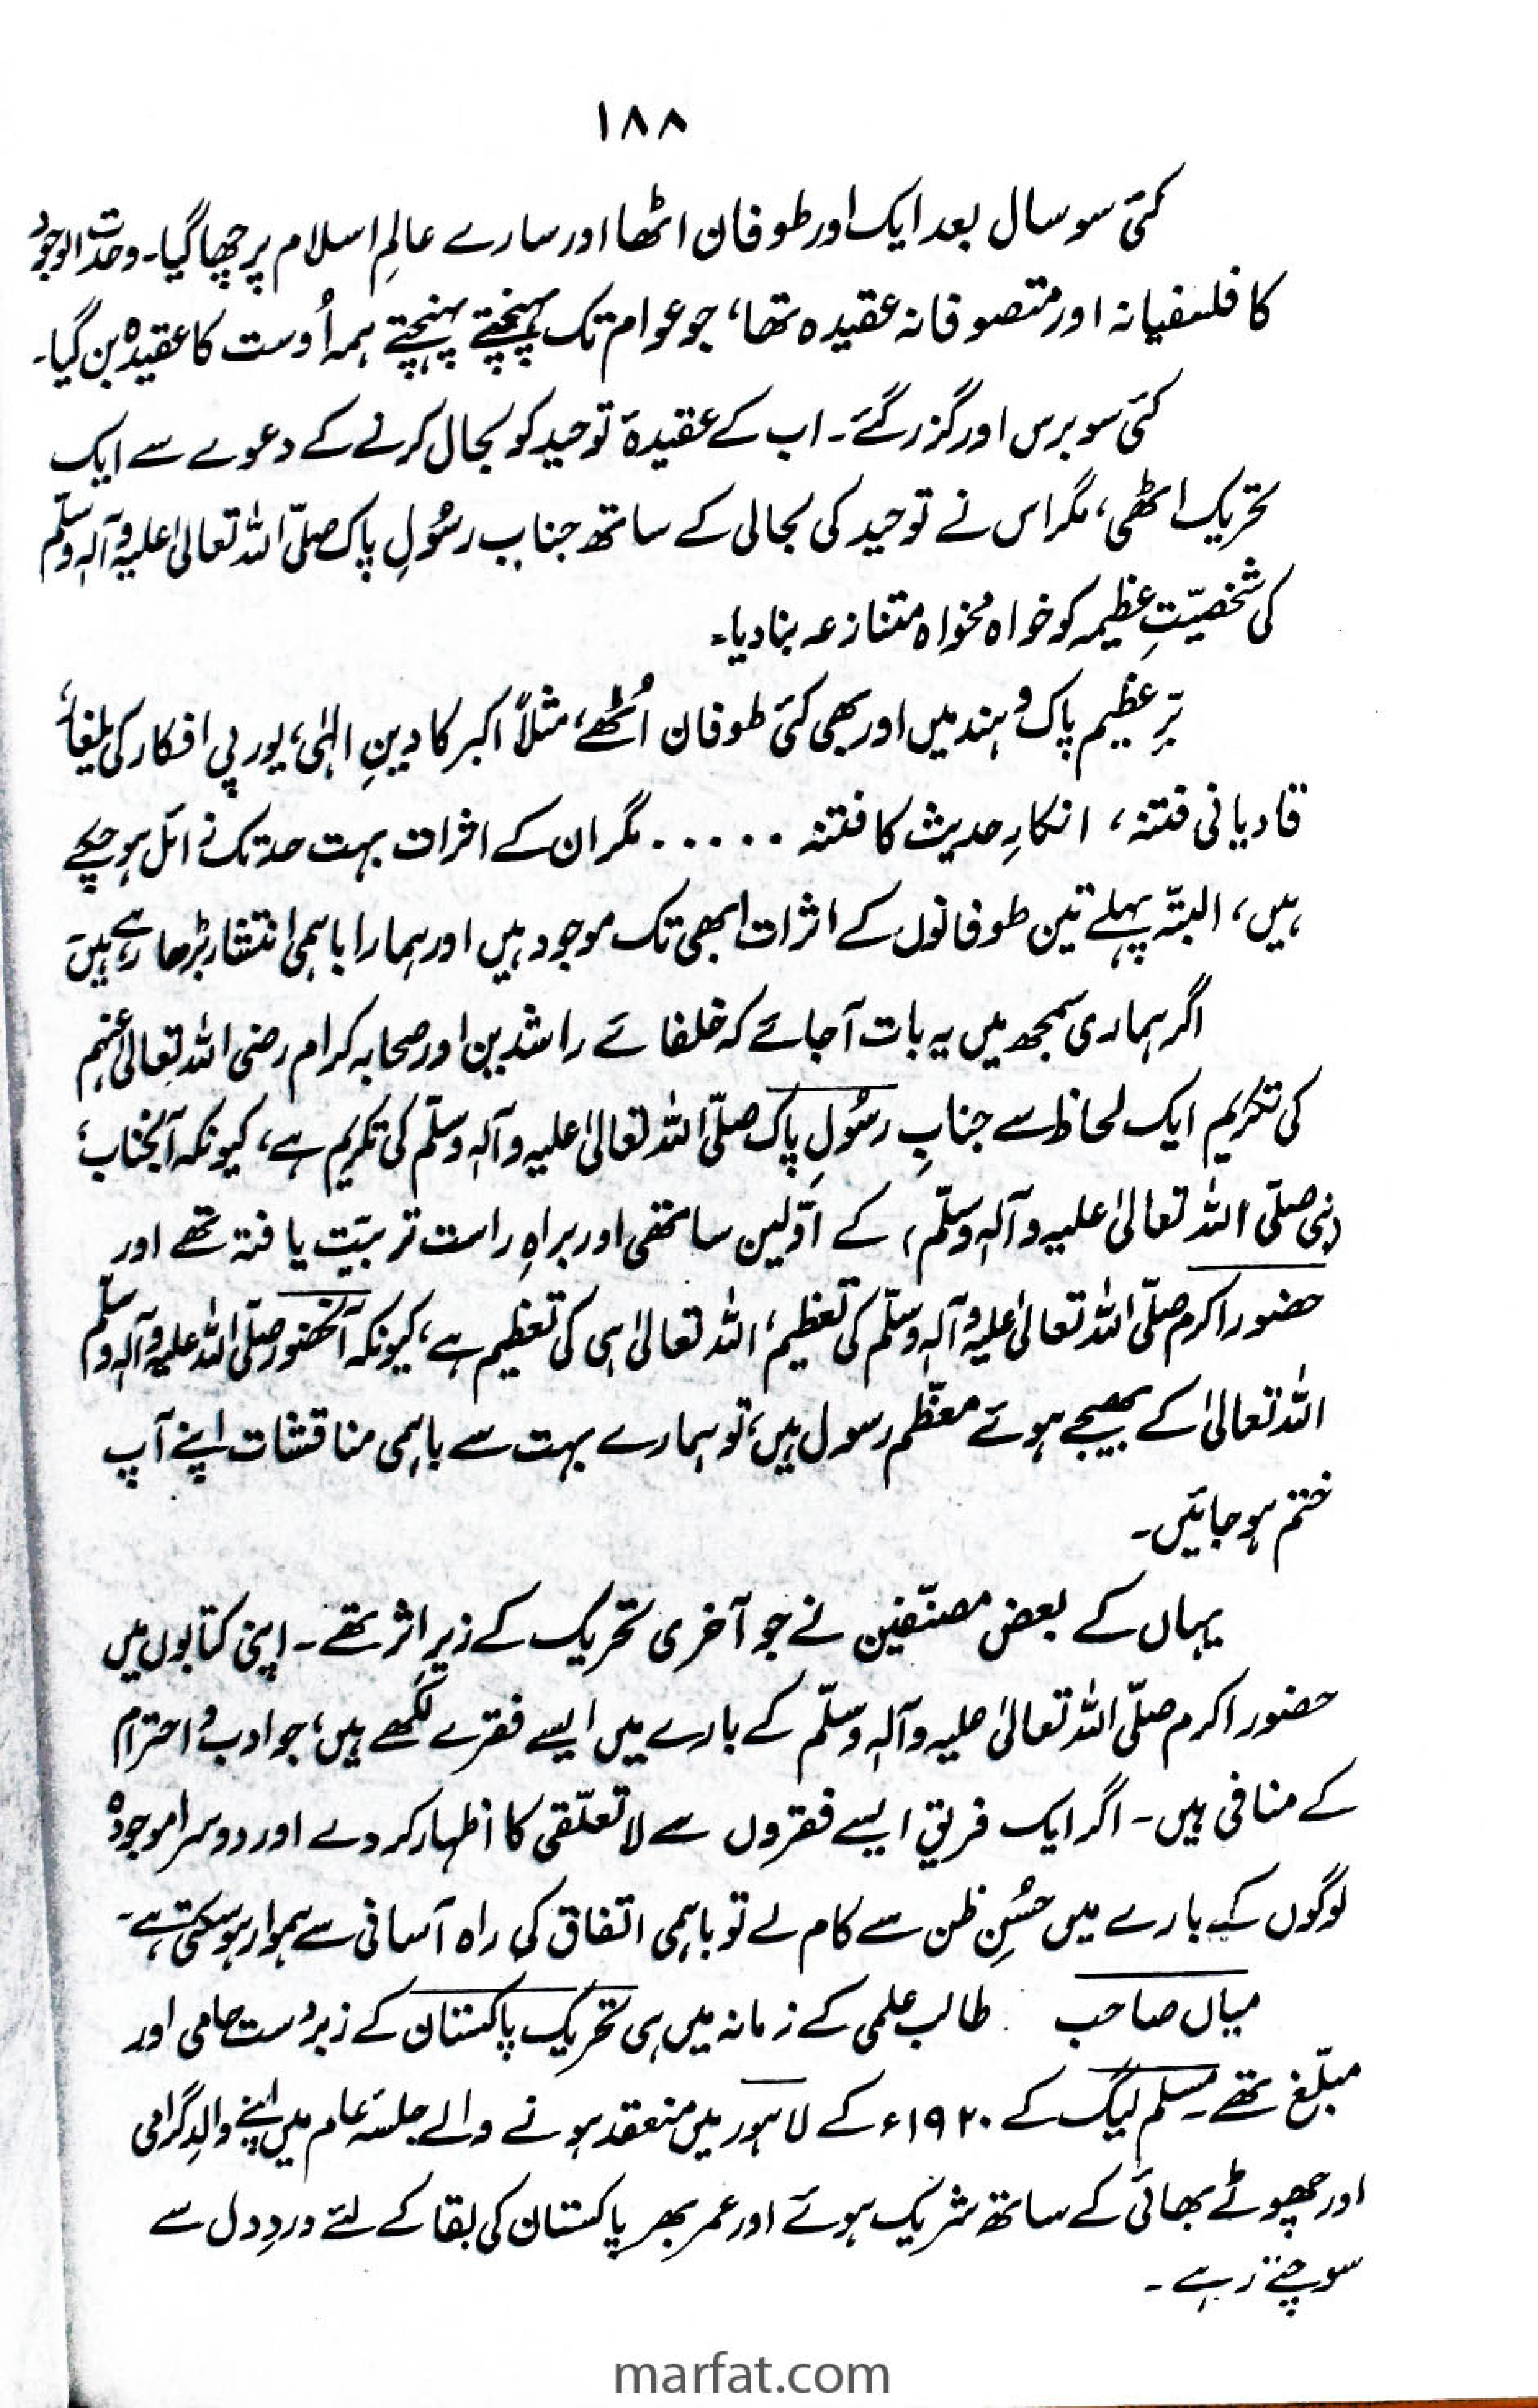 ۱۸۸
کئی سو سال بعد ایک اور طوفان اٹھا اور سارے عالمِ اسلام پر چھا گیا۔ وحدت الوجود
کا فلسفیانہ اور متصوفانہ عقیدہ تھا، جو عوام تک پہنچتے پہنچتے ہمہ اُوست کا عقیدہ بن گیا۔
کئی سو برس اور گزر گئے۔ اب کے عقیدۂ توحید کو بحال کرنے کے دعوے سے ایک
تحریک اٹھی، مگر اس نے توحید کی بحالی کے ساتھ جناب رسُولِ پاک صلّی اللہ تعالیٰ علیہ وآلہٖ وسلّم
کی شخصیّتِ عظیمہ کو خواہ مخواہ متنازعہ بنا دیا۔
برِّ عظیم پاک و ہند میں اور بھی کئی طوفان اُٹھے، مثلاً اکبر کا دینِ الہٰی، یورپی افکار کی یلغار،
قادیانی فتنہ، انکارِ حدیث کا فتنہ ۔۔۔۔۔ مگر ان کے اثرات بہت حد تک زائل ہو چکے
ہیں، البتّہ پہلے تین طوفانوں کے اثرات ابھی تک موجود ہیں اور ہمارا باہمی انتشار بڑھا رہے ہیں۔
اگر ہماری سمجھ میں یہ بات آ جائے کہ خلفائے راشدین اور صحابہ کرام رضی اللہ تعالیٰ عنہم
کی تکریم ایک لحاظ سے جنابِ رسُولِ پاک صلّی اللہ تعالیٰ علیہ وآلہٖ وسلّم کی تکریم ہے، کیونکہ آنجناب
(نبی صلّی اللہ تعالیٰ علیہ وآلہٖ وسلّم) کے اوّلین ساتھی اور براہِ راست تربیّت یافتہ تھے اور
حضور اکرم صلّی اللہ تعالیٰ علیہ وآلہٖ وسلّم کی تعظیم، اللہ تعالیٰ ہی کی تعظیم ہے، کیونکہ آنحضور صلّی اللہ علیہ وآلہٖ وسلّم
اللہ تعالیٰ کے بھیجے ہوئے معظّم رسول ہیں، تو ہمارے بہت سے باہمی مناقشات اپنے آپ
ختم ہو جائیں۔
یہاں کے بعض مصنّفین نے جو آخری تحریک کے زیرِ اثر تھے۔ اپنی کتابوں میں
حضور اکرم صلّی اللہ تعالیٰ علیہ وآلہٖ وسلّم کے بارے میں ایسے فقرے لکھے ہیں، جو ادب و احترام
کے منافی ہیں۔ اگر ایک فریق ایسے فقروں سے لاتعلّقی کا اظہار کر دے اور دوسرا موجودہ
لوگوں کے بارے میں حسُنِ ظن سے کام لے تو باہمی اتفاق کی راہ آسانی سے ہموار ہو سکتی ہے۔
میاں صاحب طالب علمی کے زمانہ میں ہی تحریک پاکستان کے زبردست حامی اور
مبلّغ تھے۔ مسلم لیگ کے ۱۹۲۰ء کے لاہور میں منعقد ہونے والے جلسۂ عام میں اپنے والدِ گرامی
اور چھوٹے بھائی کے ساتھ شریک ہوئے اور عمر بھر پاکستان کی بقا کے لئے دردِ دل سے
سوچتے رہے۔
marfat.com